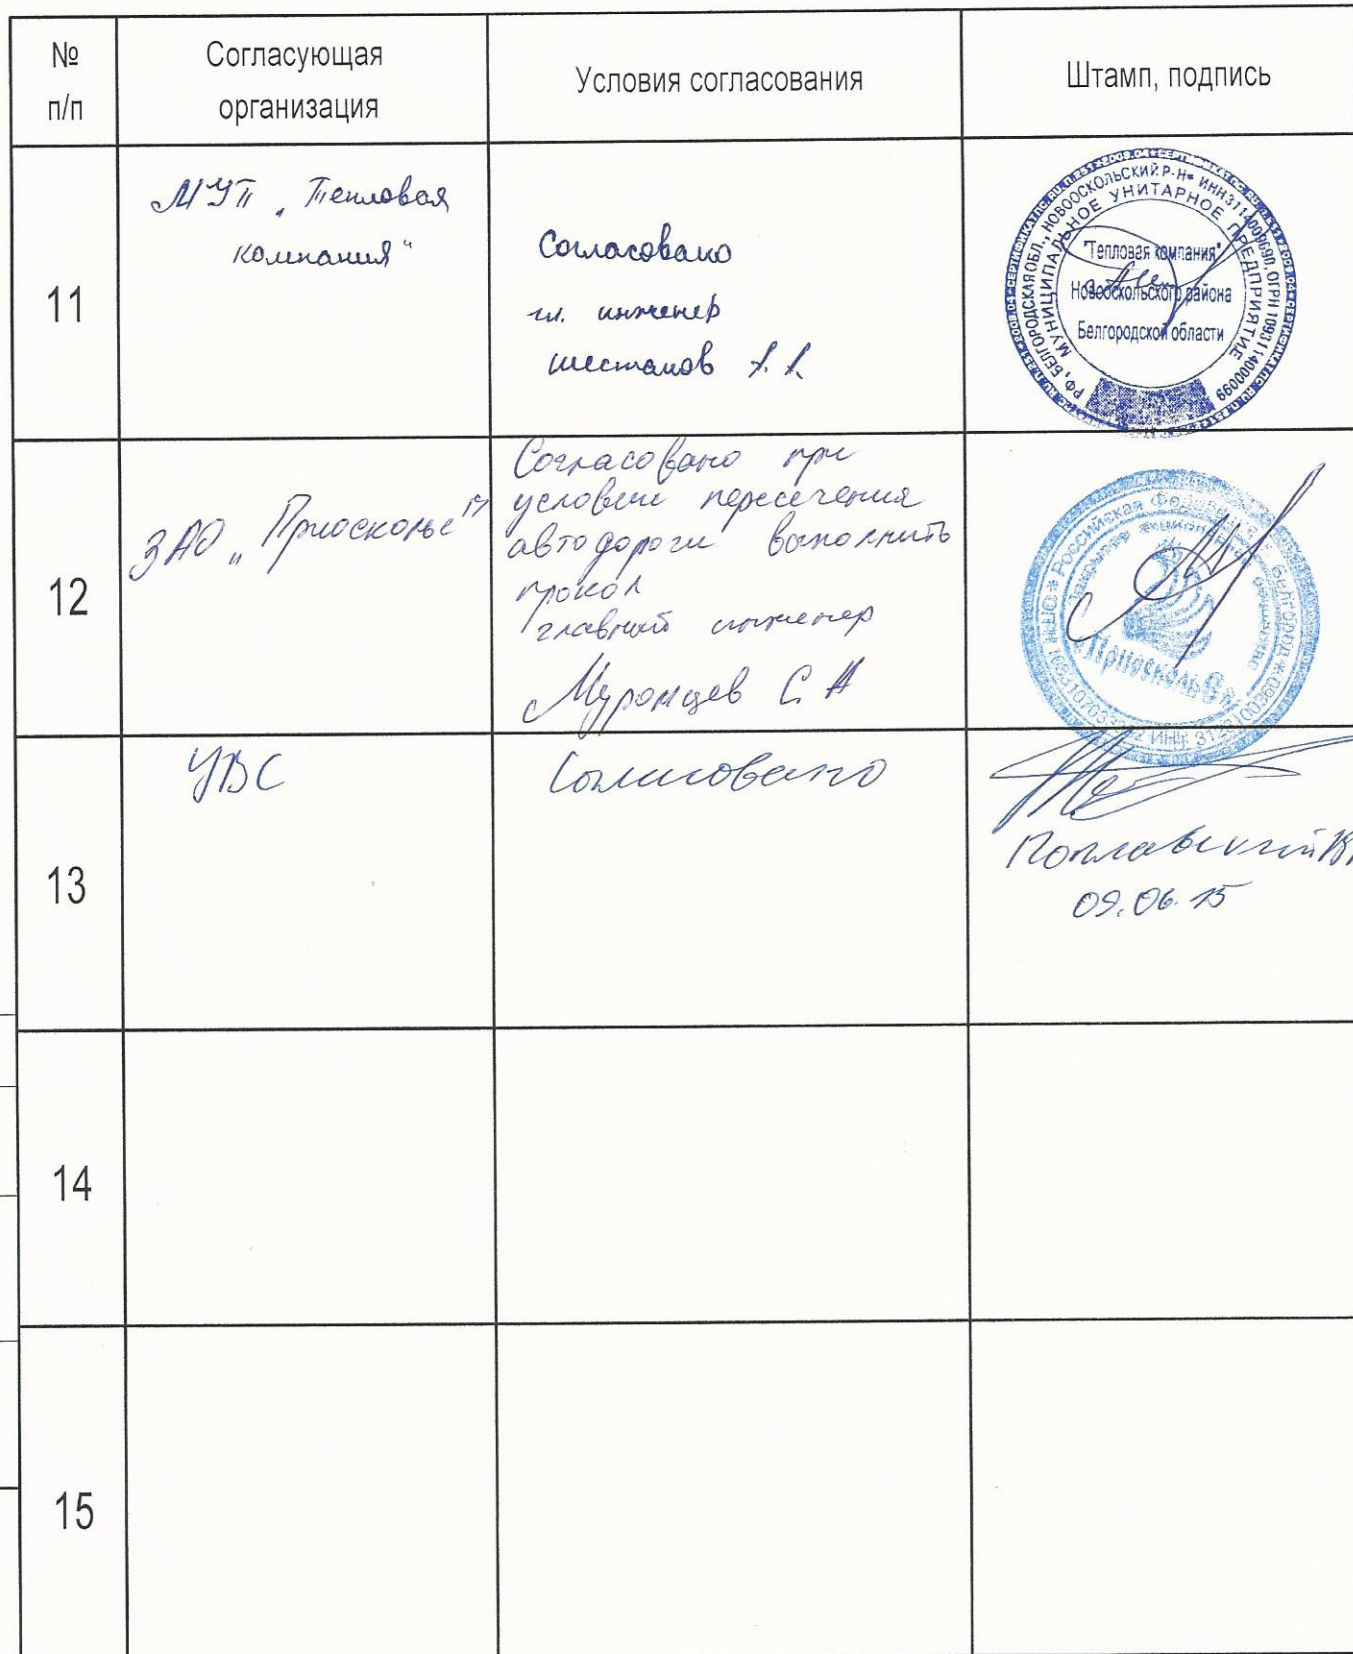 №
п/п
Согласующая
организация
Условия согласования
Штамп, подпись
11
МУП „Тепловая
компания"
Согласовано
гл. инженер
Шестаков
РФ, БЕЛГОРОДСКАЯ ОБЛ., НОВООСКОЛЬСКИЙ Р-Н
ОГРН 1093114000099
МУНИЦИПАЛЬНОЕ УНИТАРНОЕ ПРЕДПРИЯТИЕ
"Тепловая компания"
Новооскольского района
Белгородской области
12
ЗАО „Приосколье"
Согласовано при
условии пересечения
автодороги выполнить
прокол
главный инженер
Муромцев С. А
Российская
г. Белгород
«Приосколье»
13
УВС
Согласовано
Поплавский
09.06.15
14
15